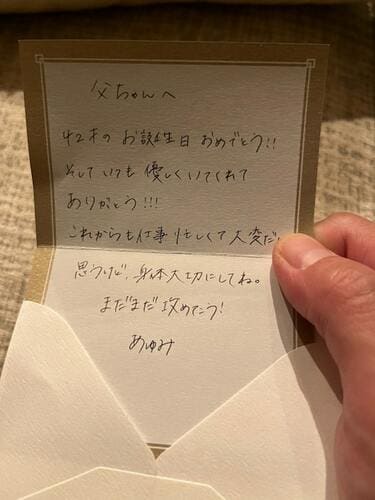 父ちゃんへ
42才のお誕生日おめでとう!!
そしていつも優しくいてくれて
ありがとう!!!
これからも仕事忙しくて大変だ
思うけど、身体大切にしてね。
まだまだ攻めてこう!
あゆみ